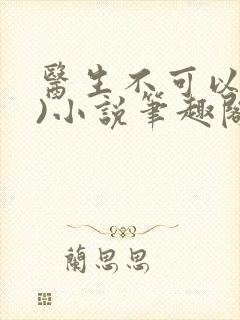 醫生不可以
)小說筆趣閣
蘭思思